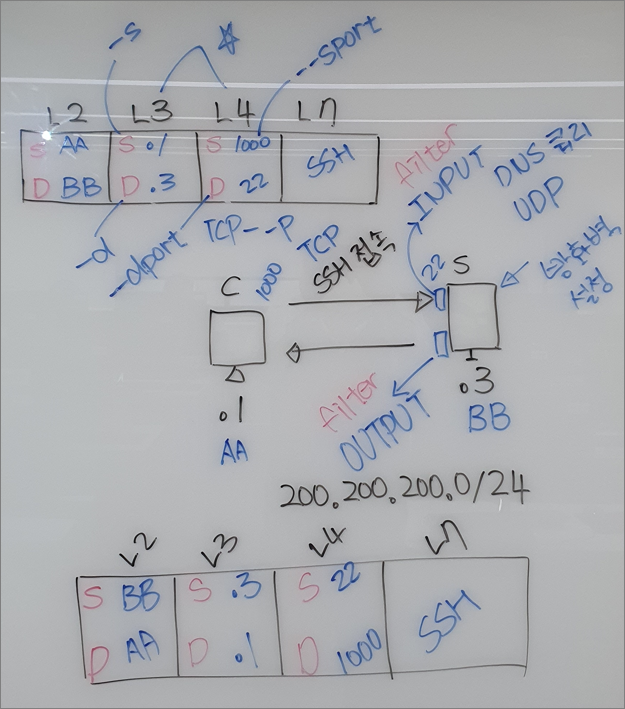 -s
--sport
L2 L3 L4 L7
S AA S .1 S 1000 SSH
D BB D .3 D 22
-d
--dport
TCP--P
filter
INPUT
DNS 쿼리
UDP
TCP
SSH 접속
C
1000
22
S
방화벽
설정
.1
AA
filter
OUTPUT
.3
BB
200.200.200.0/24
L2 L3 L4 L7
S BB S .3 S 22 SSH
D AA D .1 D 1000